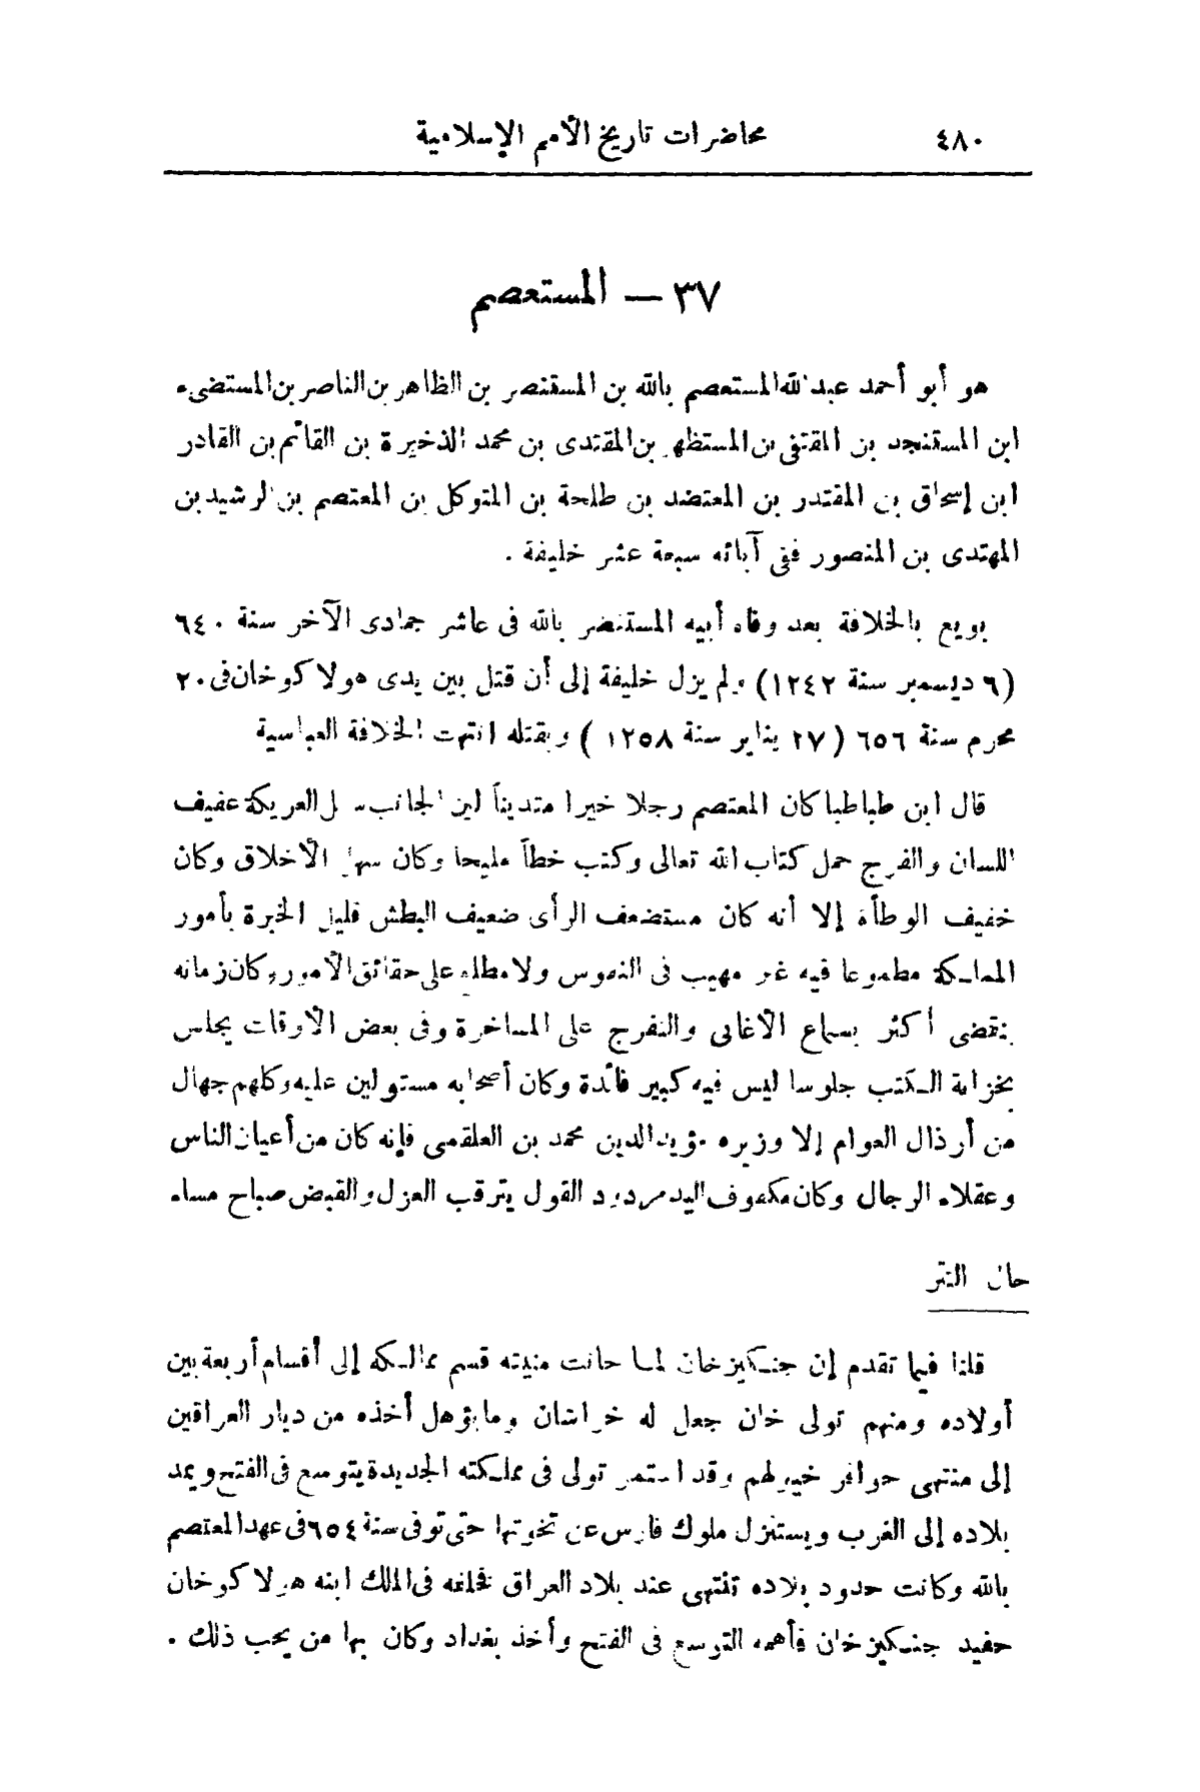 ٤٨٠ محاضرات تاريخ الأمم الإسلامية
٣٧ — المستعصم
هو أبو أحمد عبد الله المستعصم بالله بن المستنصر بن الظاهر بن الناصر بن المستضىء
ابن المستنجد بن المقتفى بن المستظهر بن المقتدى بن محمد الذخيرة بن القائم بن القادر
ابن إسحاق بن المقتدر بن المعتضد بن طلحة بن المتوكل بن المعتصم بن الرشيد بن
المهتدى بن المنصور ففى آبائه سبعة عشر خليفة .
بويع بالخلافة بعد وفاة أبيه المستنضر بالله فى عاشر جمادى الآخر سنة ٦٤٠
(٦ ديسمبر سنة ١٢٤٢) ولم يزل خليفة إلى أن قتل بين يدى هولا كو خان فى ٢٠
محرم سنة ٦٥٦ ( ٢٧ يناير سنة ١٢٥٨ ) وبقتله انتهت الخلافة العباسية
قال ابن طباطبا كان المعتصم رجلا خيرا متديناً لين الجانب سهل العريكة عفيف
اللسان والفرج حمل كتاب الله تعالى وكتب خطاً مليحا وكان سهل الأخلاق وكان
خفيف الوطأة إلا أنه كان مستضعف الرأى ضعيف البطش قليل الخبرة بأمور
المملكة مطموعا فيه غير مهيب فى النفوس ولا مطلع على حقائق الأمور وكان زمانه
ينقضى أكثر بسماع الأغانى والتفرج على المساخرة وفى بعض الأوقات يجلس
بخزانة الكتب جلوسا ليس فيه كبير فائدة وكان أصحابه مستولين عليه وكلهم جهال
من أرذال العوام إلا وزيره مؤيد الدين محمد بن العلقمى فإنه كان من أعيان الناس
وعقلاء الرجال وكان مكفوف اليد مردود القول يترقب العزل والقبض صباح مساء
حال التتر
قلنا فيما تقدم إن جنكيز خان لما حانت منيته قسم ممالكه إلى أقسام أربعة بين
أولاده ومنهم تولى خان جعل له خراسان وما يؤهل أخذه من ديار العراقين
إلى منتهى حوافر خيولهم وقد استمر تولى فى مملكته الجديدة يتوسع فى الفتح ويمد
بلاده إلى الغرب ويستنزل ملوك فارس عن تخوتها حتى توفى سنة ٦٥٤ فى عهد المعتصم
بالله وكانت حدود بلاده تنتهى عند بلاد العراق فخلفه فى الملك ابنه هولا كو خان
حفيد جنكيز خان فأهمه التوسع فى الفتح وأخذ بغداد وكان بها من يحب ذلك .